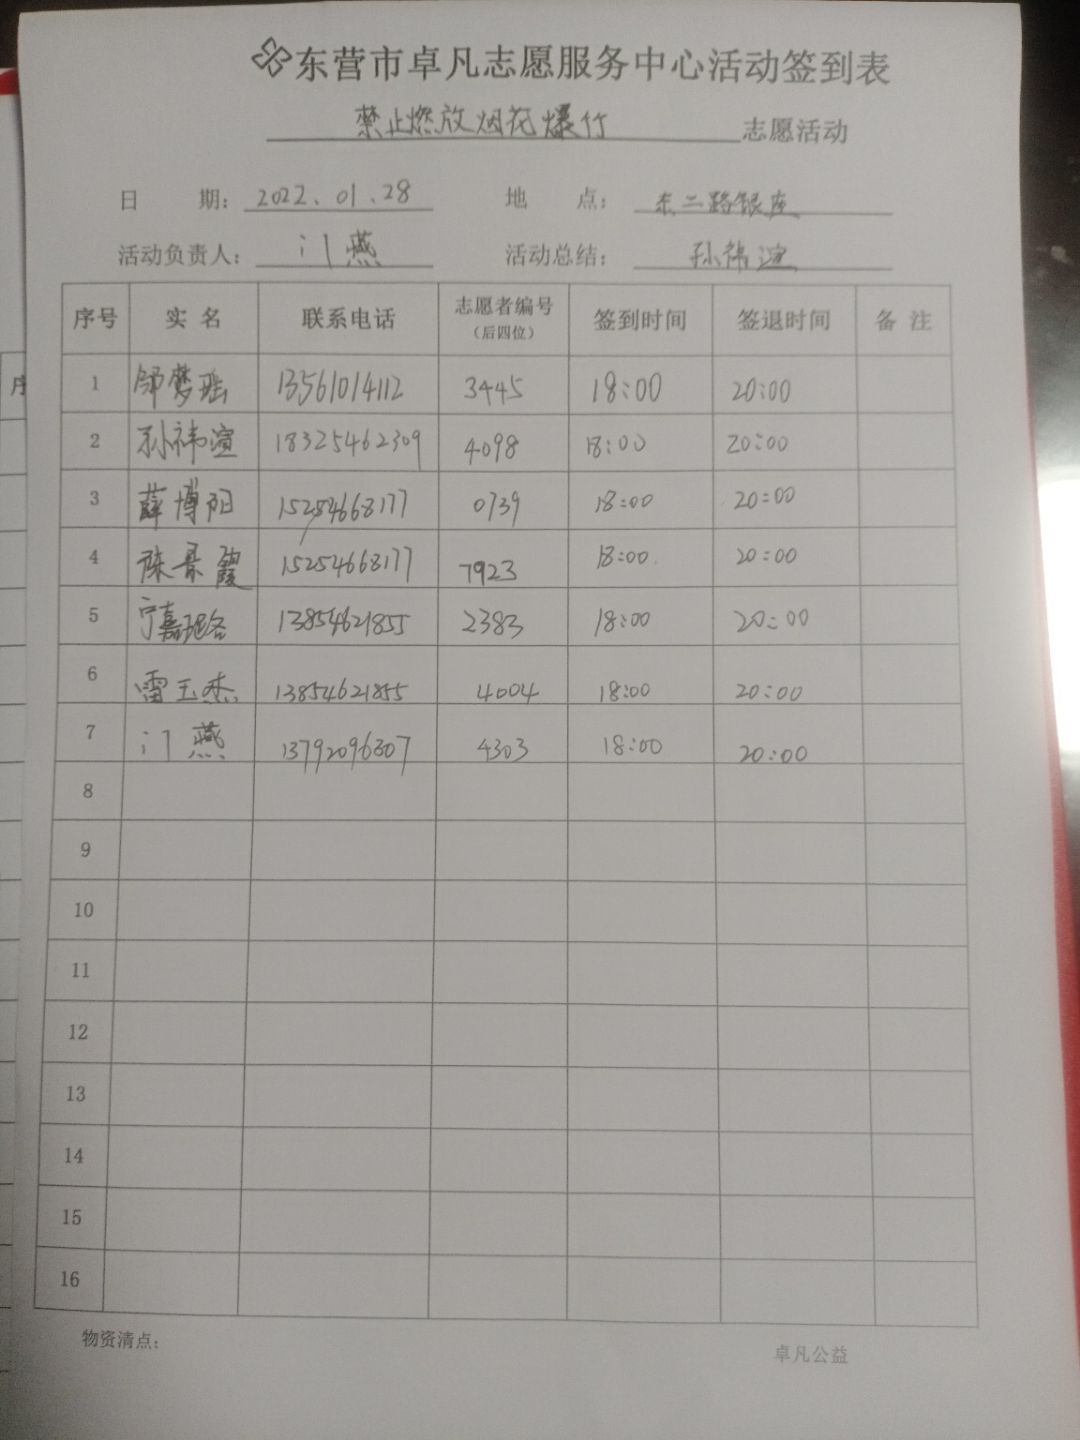 东营市卓凡志愿服务中心活动签到表
禁止燃放烟花爆竹 志愿活动
日 期: 2022.01.28 地 点: 东二路银座
活动负责人: 门燕 活动总结: 孙祎渲
序号 实 名 联系电话 志愿者编号 (后四位) 签到时间 签退时间 备 注
1 邹梦瑶 13561014112 3445 18:00 20:00
2 孙祎渲 18325462309 4098 18:00 20:00
3 薛博阳 15254668177 0739 18:00 20:00
4 陈景霞 15254668177 7923 18:00 20:00
5 宁嘉 13854621855 2383 18:00 20:00
6 雷玉杰 13854621855 4004 18:00 20:00
7 门燕 13792096307 4303 18:00 20:00
8
9
10
11
12
13
14
15
16
物资清点:
卓凡公益
序